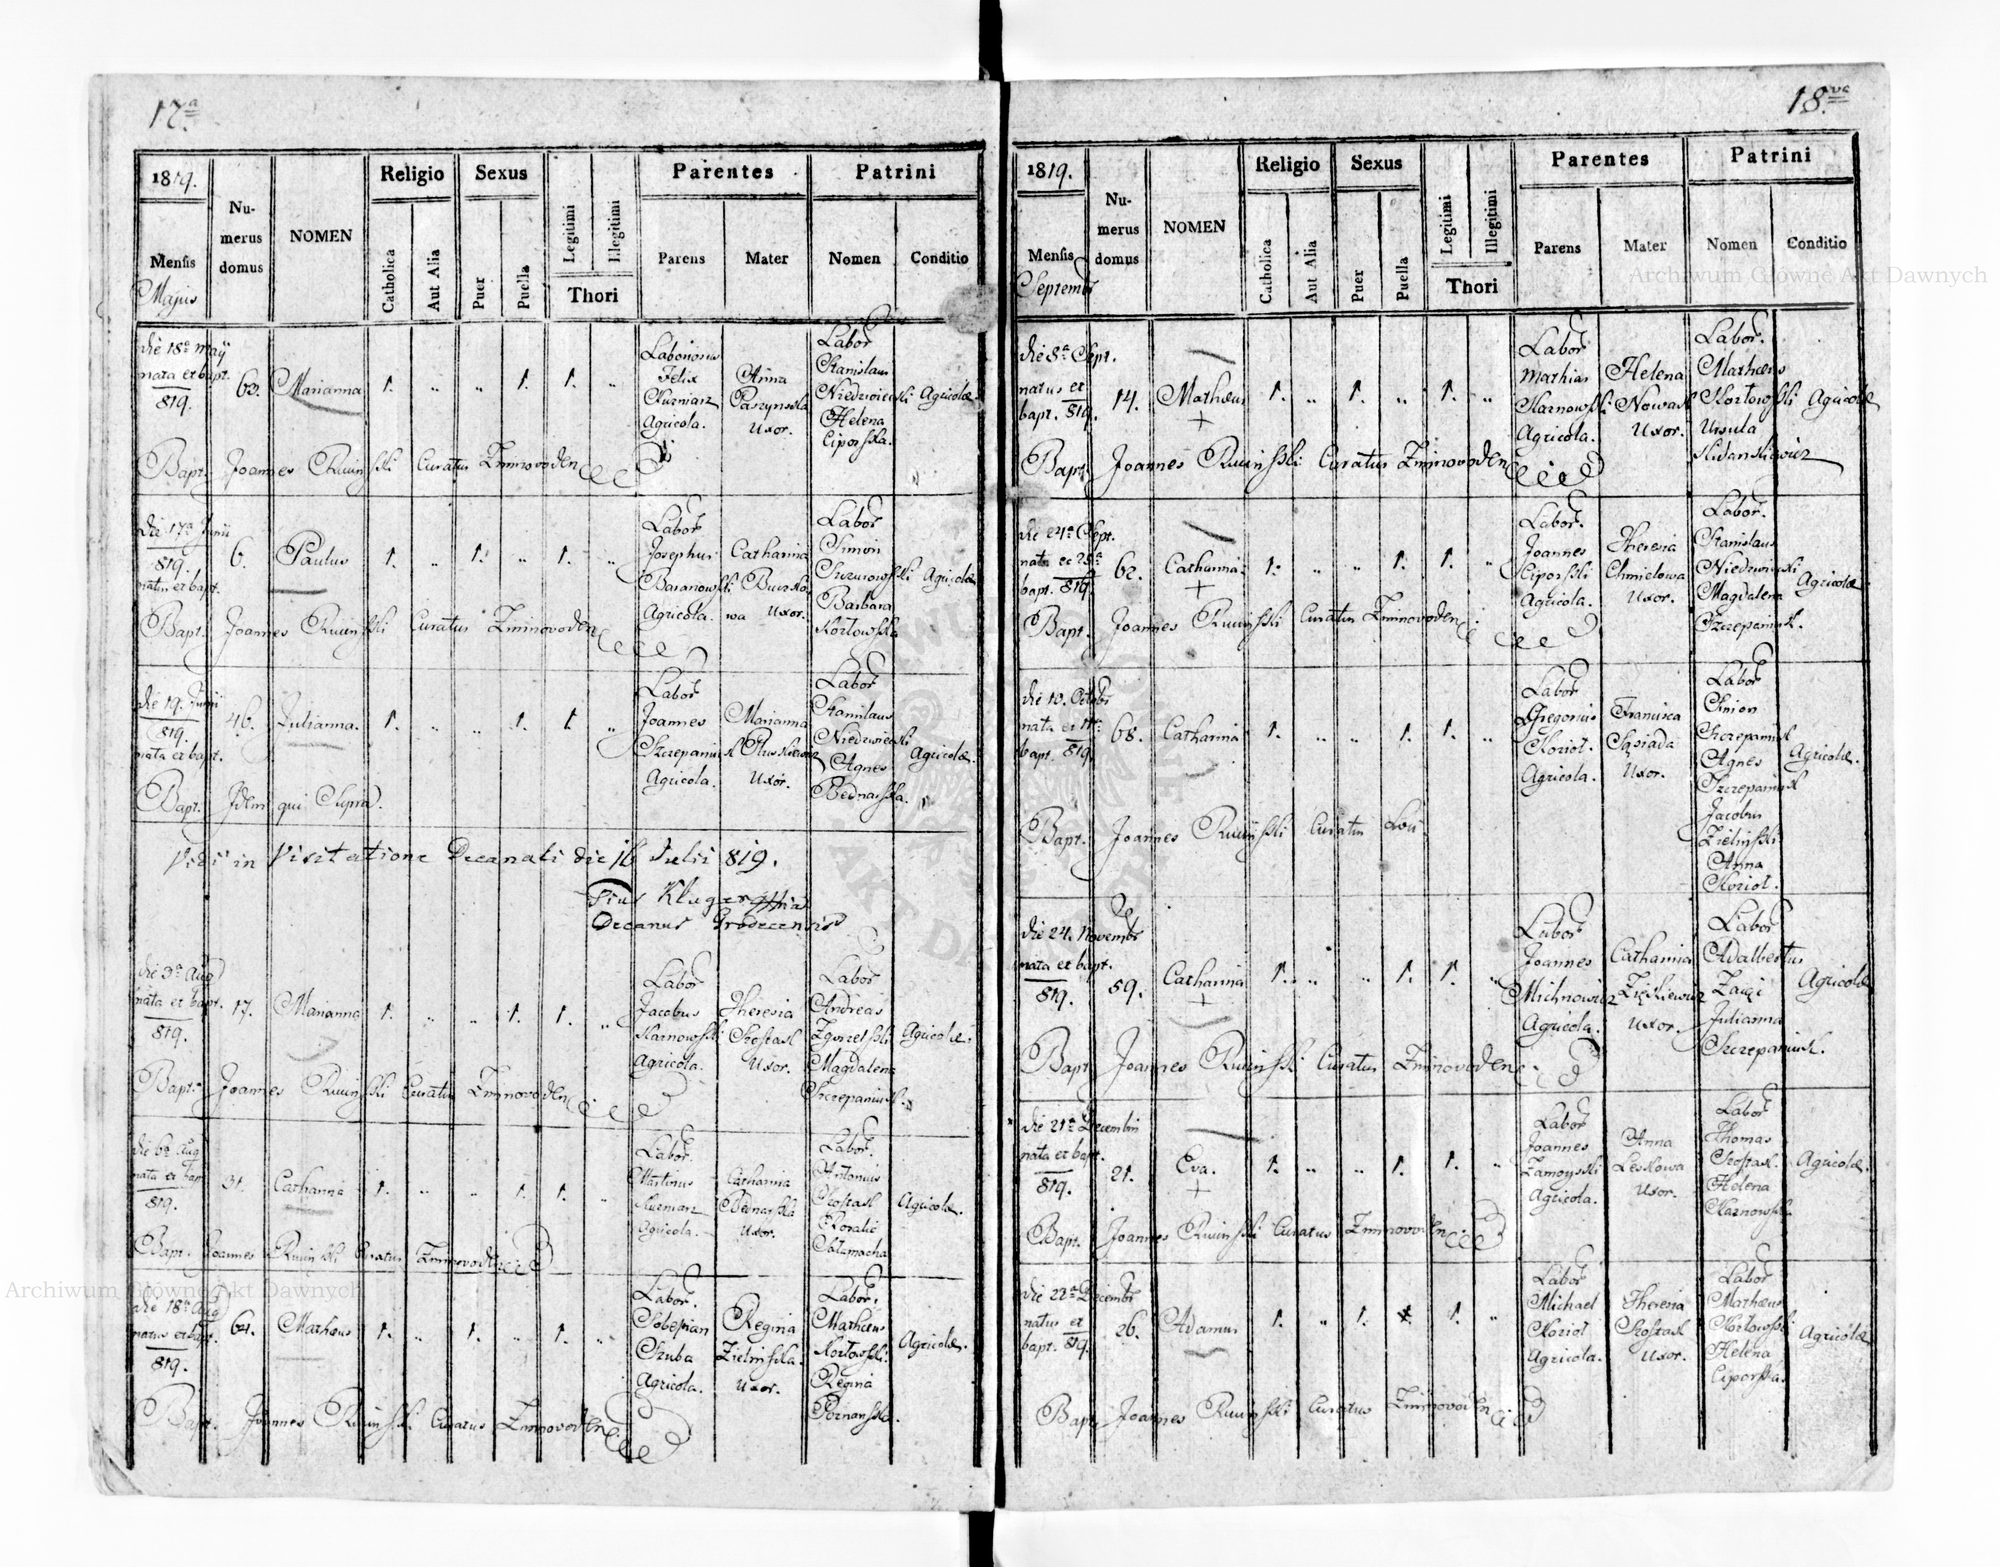 17.a
1819.
Mensis
Majus
Numerus domus
NOMEN
Religio
Catholica
Aut Alia
Sexus
Puer
Puella
Legitimi
Illegitimi
Thori
Parentes
Parens
Mater
Patrini
Nomen
Conditio
die 18a May
nata et bapt.
819.
63.
Marianna
1. „ „ 1. 1. „
Felix
Kurniarz
Agricola.
Anna
Paszynska
Uxor.
Labor
Stanislaus
Niedzwiecki
Helena
Ciporska.
Agricolae
Bapt. Joannes Curatus Zimnovoden
die 17a Junii
819.
natus et bapt.
6.
Paulus
1. „ 1. „ 1. „
Labor
Josephus
Baranowski
Agricola.
Catharina
Uxor.
Labor
Simon
Barbara
Kozłowska
Agricolae
Bapt. Joannes Curatus Zimnovoden
die 19. Junii
819.
nata et bapt.
46.
Julianna.
1. „ „ 1. 1. „
Labor
Joannes
Szczepaniuk
Agricola.
Marianna
Uxor.
Labor
Stanislaus
Niedzwiecki
Agnes
Bednarska.
Agricolae.
Bapt. Idem qui Supra.
Vidi in Visitatione Decanali die 16 Julii 819.
Pius Kluger
Decanus Grodecensis
die 3a Aug
nata et bapt.
819.
17.
Marianna
1. „ „ 1. 1. „
Labor
Jacobus
Karnowski
Agricola.
Theresia
Szostak
Uxor.
Labor
Andreas
Zgorzelski
Magdalena
Szczepaniuk.
Agricolae.
Bapt. Joannes Curatus Zimnovoden
die 6a Aug
nata et bapt
819.
31.
Catharina
1. „ „ 1. 1. „
Labor.
Martinus
Kurniarz
Agricola.
Catharina
Bednarska
Uxor.
Labor.
Antonius
Szostak
Rosalia
Agricolae.
Bapt. Joannes Curatus Zimnovoden
die 18a Aug
natus et bapt.
819.
64.
Mathaeus
1. „ 1. „ 1. „
Labor.
Sobestian
Szuba
Agricola.
Regina
Zielinska.
Uxor.
Labor.
Mathaeus
Kozłowski.
Regina
Poznanska.
Agricolae.
Bapt. Joannes Curatus Zimnovoden
18.va
1819.
Mensis
Septembr
Numerus domus
NOMEN
Religio
Catholica
Aut Alia
Sexus
Puer
Puella
Legitimi
Illegitimi
Thori
Parentes
Parens
Mater
Patrini
Nomen
Conditio
die 8a Sept.
natus et
bapt. 819.
14.
Mathaeus
+
1. „ 1. „ 1. „
Labor
Mathias
Karnowski
Agricola.
Helena
Nowak
Uxor.
Labor.
Mathaeus
Kozłowski
Ursula
Agricolae
Bapt. Joannes Curatus Zimnovoden
die 24a Sept.
nata et 25a
bapt. 819
62.
Catharina.
+
1. „ „ 1. 1. „
Labor.
Joannes
Ciporski
Agricola.
Theresia
Chmielowa
Uxor.
Labor.
Stanislaus
Niedzwiecki
Magdalena
Szczepaniuk.
Agricolae
Bapt. Joannes Curatus Zimnovoden
die 10. Octobr
nata et 11a
bapt. 819.
68.
Catharina
1. „ „ 1. 1. „
Labor
Gregorius
Kozioł.
Agricola.
Francisca
Sąsiada
Uxor.
Labor
Simon
Szczepaniuk
Agnes
Szczepaniuk
Jacobus
Zielinski
Anna
Kozioł.
Agricolae.
Bapt. Joannes Curatus Loci
die 24. Novembr
nata et bapt.
819.
59.
Catharina
+
1. „ „ 1. 1. „
Labor
Joannes
Michnowicz
Agricola.
Catharina
Uxor.
Labor
Adalbertus
Zając
Julianna
Szczepaniuk.
Agricolae
Bapt. Joannes Curatus Zimnovoden
die 21a Decembr
nata et bapt.
819.
21.
Eva.
+
1. „ „ 1. 1. „
Labor
Joannes
Zamoyski
Agricola.
Anna
Leskowa
Uxor.
Labor
Thomas
Szostak.
Helena
Karnowski
Agricolae.
Bapt. Joannes Curatus Zimnovoden
die 22a Decembr
natus et
bapt. 819.
26.
Adamus
1. „ 1. 1. „
Labor
Michael
Kozioł
Agricola.
Theresia
Szostak
Uxor.
Labor
Mathaeus
Kozłowski
Helena
Ciporska.
Agricolae
Bapt. Joannes Curatus Zimnovoden
Archiwum Główne Akt Dawnych
Archiwum Główne Akt Dawnych